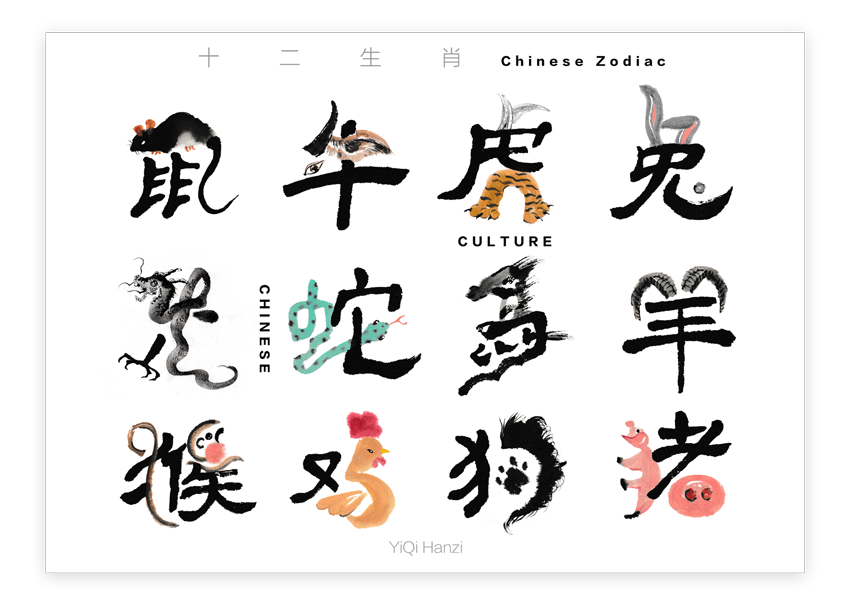 十二生肖 Chinese Zodiac
鼠 牛 虎 兔
CULTURE
龙 蛇 馬 羊
CHINESE
猴 鸡 狗 猪
YiQi Hanzi